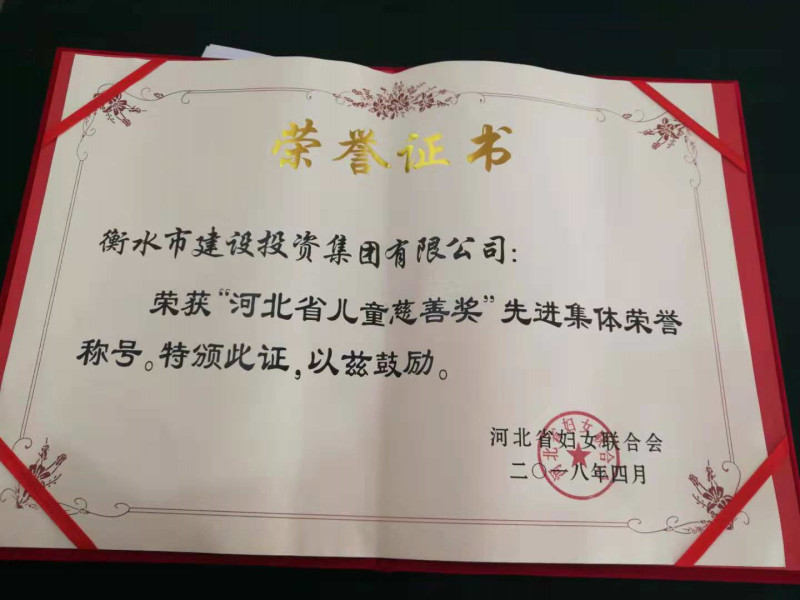 荣誉证书
衡水市建设投资集团有限公司：
荣获“河北省儿童慈善奖”先进集体荣誉
称号。特颁此证，以兹鼓励。
河北省妇女联合会
二〇一八年四月
河北省妇女联合会